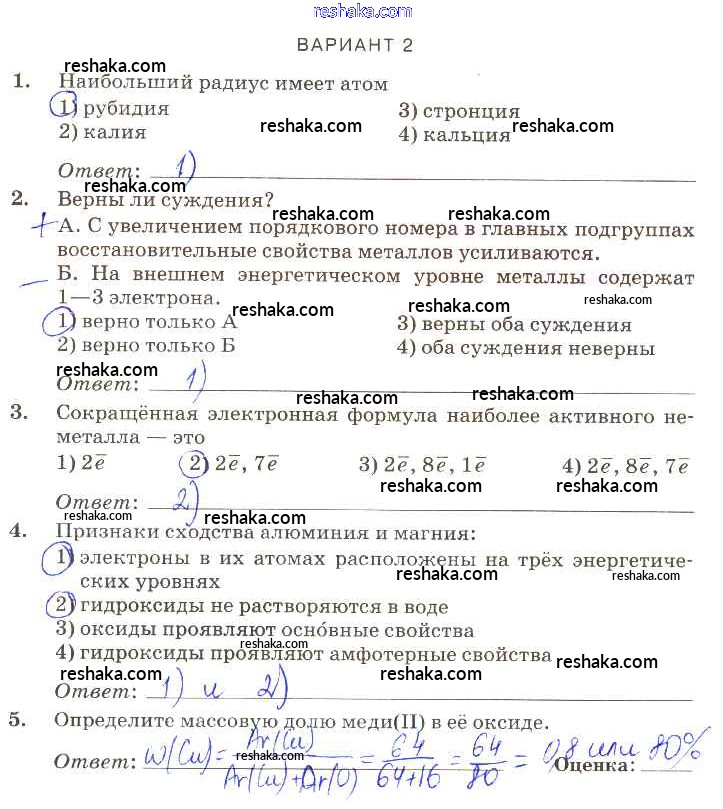 reshaka.com
ВАРИАНТ 2
1. Наибольший радиус имеет атом
1) рубидия 3) стронция
2) калия reshaka.com 4) кальция reshaka.com
Ответ: 1)
reshaka.com reshaka.com reshaka.com
2. Верны ли суждения?
+ А. С увеличением порядкового номера в главных подгруппах
восстановительные свойства металлов усиливаются.
– Б. На внешнем энергетическом уровне металлы содержат
1—3 электрона. reshaka.com reshaka.com
1) верно только А 3) верны оба суждения
2) верно только Б 4) оба суждения неверны
reshaka.com
Ответ: 1)
reshaka.com reshaka.com
3. Сокращённая электронная формула наиболее активного не-
металла — это
1) 2e̅ 2) 2e̅, 7e̅ 3) 2e̅, 8e̅, 1e̅ 4) 2e̅, 8e̅, 7e̅
reshaka.com reshaka.com
Ответ: 2)
reshaka.com reshaka.com
4. Признаки сходства алюминия и магния:
1) электроны в их атомах расположены на трёх энергетиче-
ских уровнях reshaka.com reshaka.com
2) гидроксиды не растворяются в воде
3) оксиды проявляют осно́вные свойства
reshaka.com
4) гидроксиды проявляют амфотерные свойства
reshaka.com reshaka.com reshaka.com
Ответ: 1) и 2)
5. Определите массовую долю меди(II) в её оксиде.
Ответ: w(Cu) = Ar(Cu) / Ar(Cu)+Ar(O) = 64 / 64+16 = 64 / 80 = 0,8 или 80%
reshaka.com Оценка:
reshaka.com